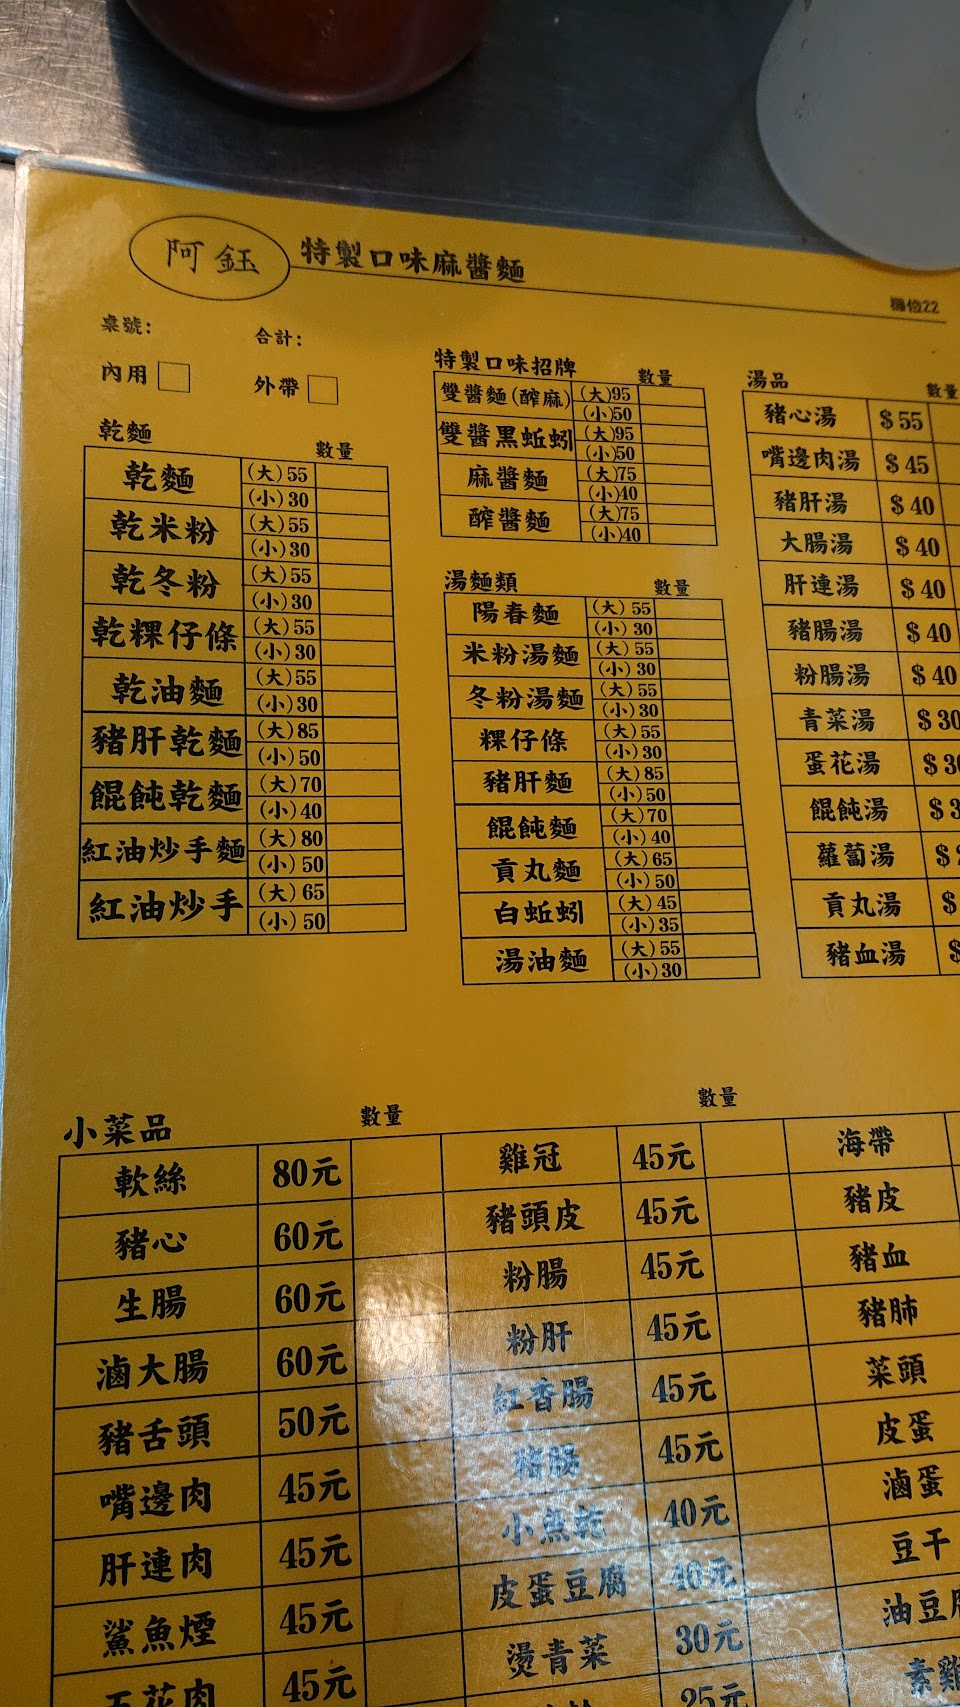 阿鈺 特製口味麻醬麵
攤位22
桌號: 合計:
內用 外帶
乾麵 數量
乾麵 (大)55
(小)30
乾米粉 (大)55
(小)30
乾冬粉 (大)55
(小)30
乾粿仔條 (大)55
(小)30
乾油麵 (大)55
(小)30
豬肝乾麵 (大)85
(小)50
餛飩乾麵 (大)70
(小)40
紅油炒手麵 (大)80
(小)50
紅油炒手 (大)65
(小)50
特製口味招牌 數量
雙醬麵(醡麻) (大)95
(小)50
雙醬黑蚯蚓 (大)95
(小)50
麻醬麵 (大)75
(小)40
醡醬麵 (大)75
(小)40
湯麵類 數量
陽春麵 (大)55
(小)30
米粉湯麵 (大)55
(小)30
冬粉湯麵 (大)55
(小)30
粿仔條 (大)55
(小)30
豬肝麵 (大)85
(小)50
餛飩麵 (大)70
(小)40
貢丸麵 (大)65
(小)50
白蚯蚓 (大)45
(小)35
湯油麵 (大)55
(小)30
湯品 數量
豬心湯 $55
嘴邊肉湯 $45
豬肝湯 $40
大腸湯 $40
肝連湯 $40
豬腸湯 $40
粉腸湯 $40
青菜湯 $30
蛋花湯 $30
餛飩湯 $3
蘿蔔湯 $
貢丸湯 $
豬血湯 $
小菜品 數量 數量
軟絲 80元 雞冠 45元 海帶
豬心 60元 豬頭皮 45元 豬皮
生腸 60元 粉腸 45元 豬血
滷大腸 60元 粉肝 45元 豬肺
豬舌頭 50元 紅香腸 45元 菜頭
嘴邊肉 45元 豬腸 45元 皮蛋
肝連肉 45元 小魚乾 40元 滷蛋
鯊魚煙 45元 皮蛋豆腐 40元 豆干
五花肉 45元 燙青菜 30元 油豆腐
25元 素雞